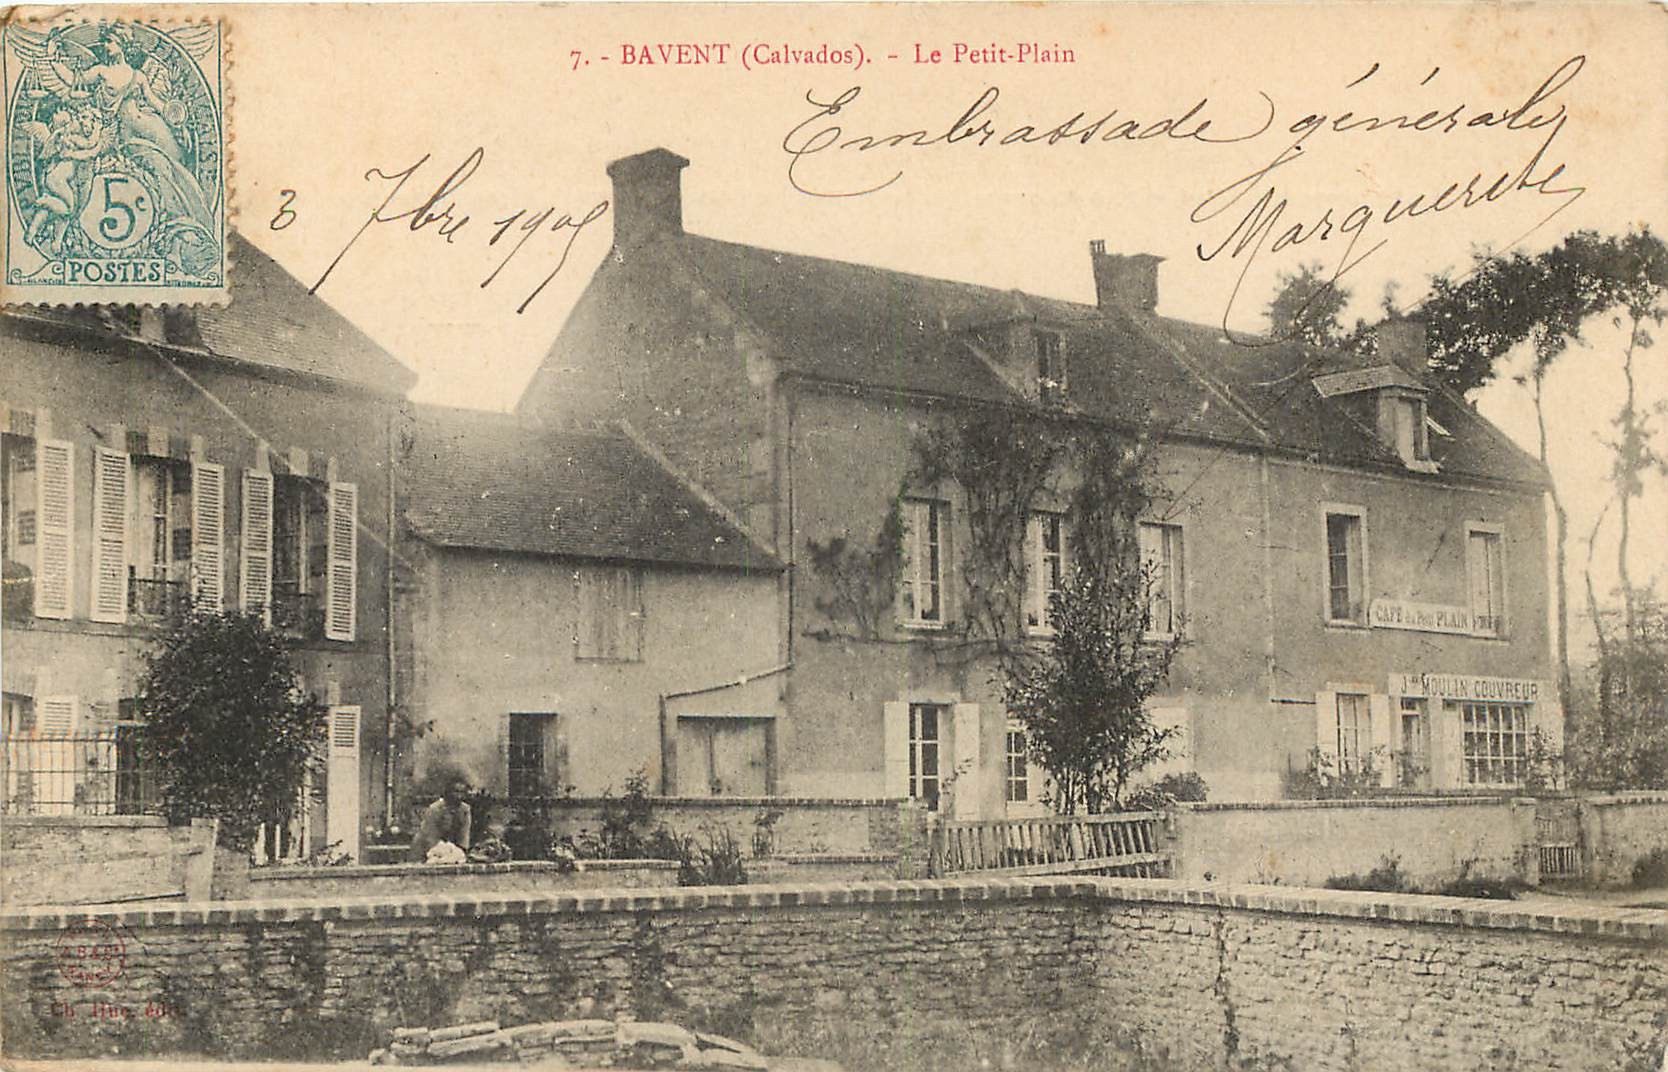 7. - BAVENT (Calvados). - Le Petit-Plain
Embrassade générale
Marguerite
3 7bre 1905
5c
POSTES
CAFÉ du Petit PLAIN
Jn MOULIN COUVREUR